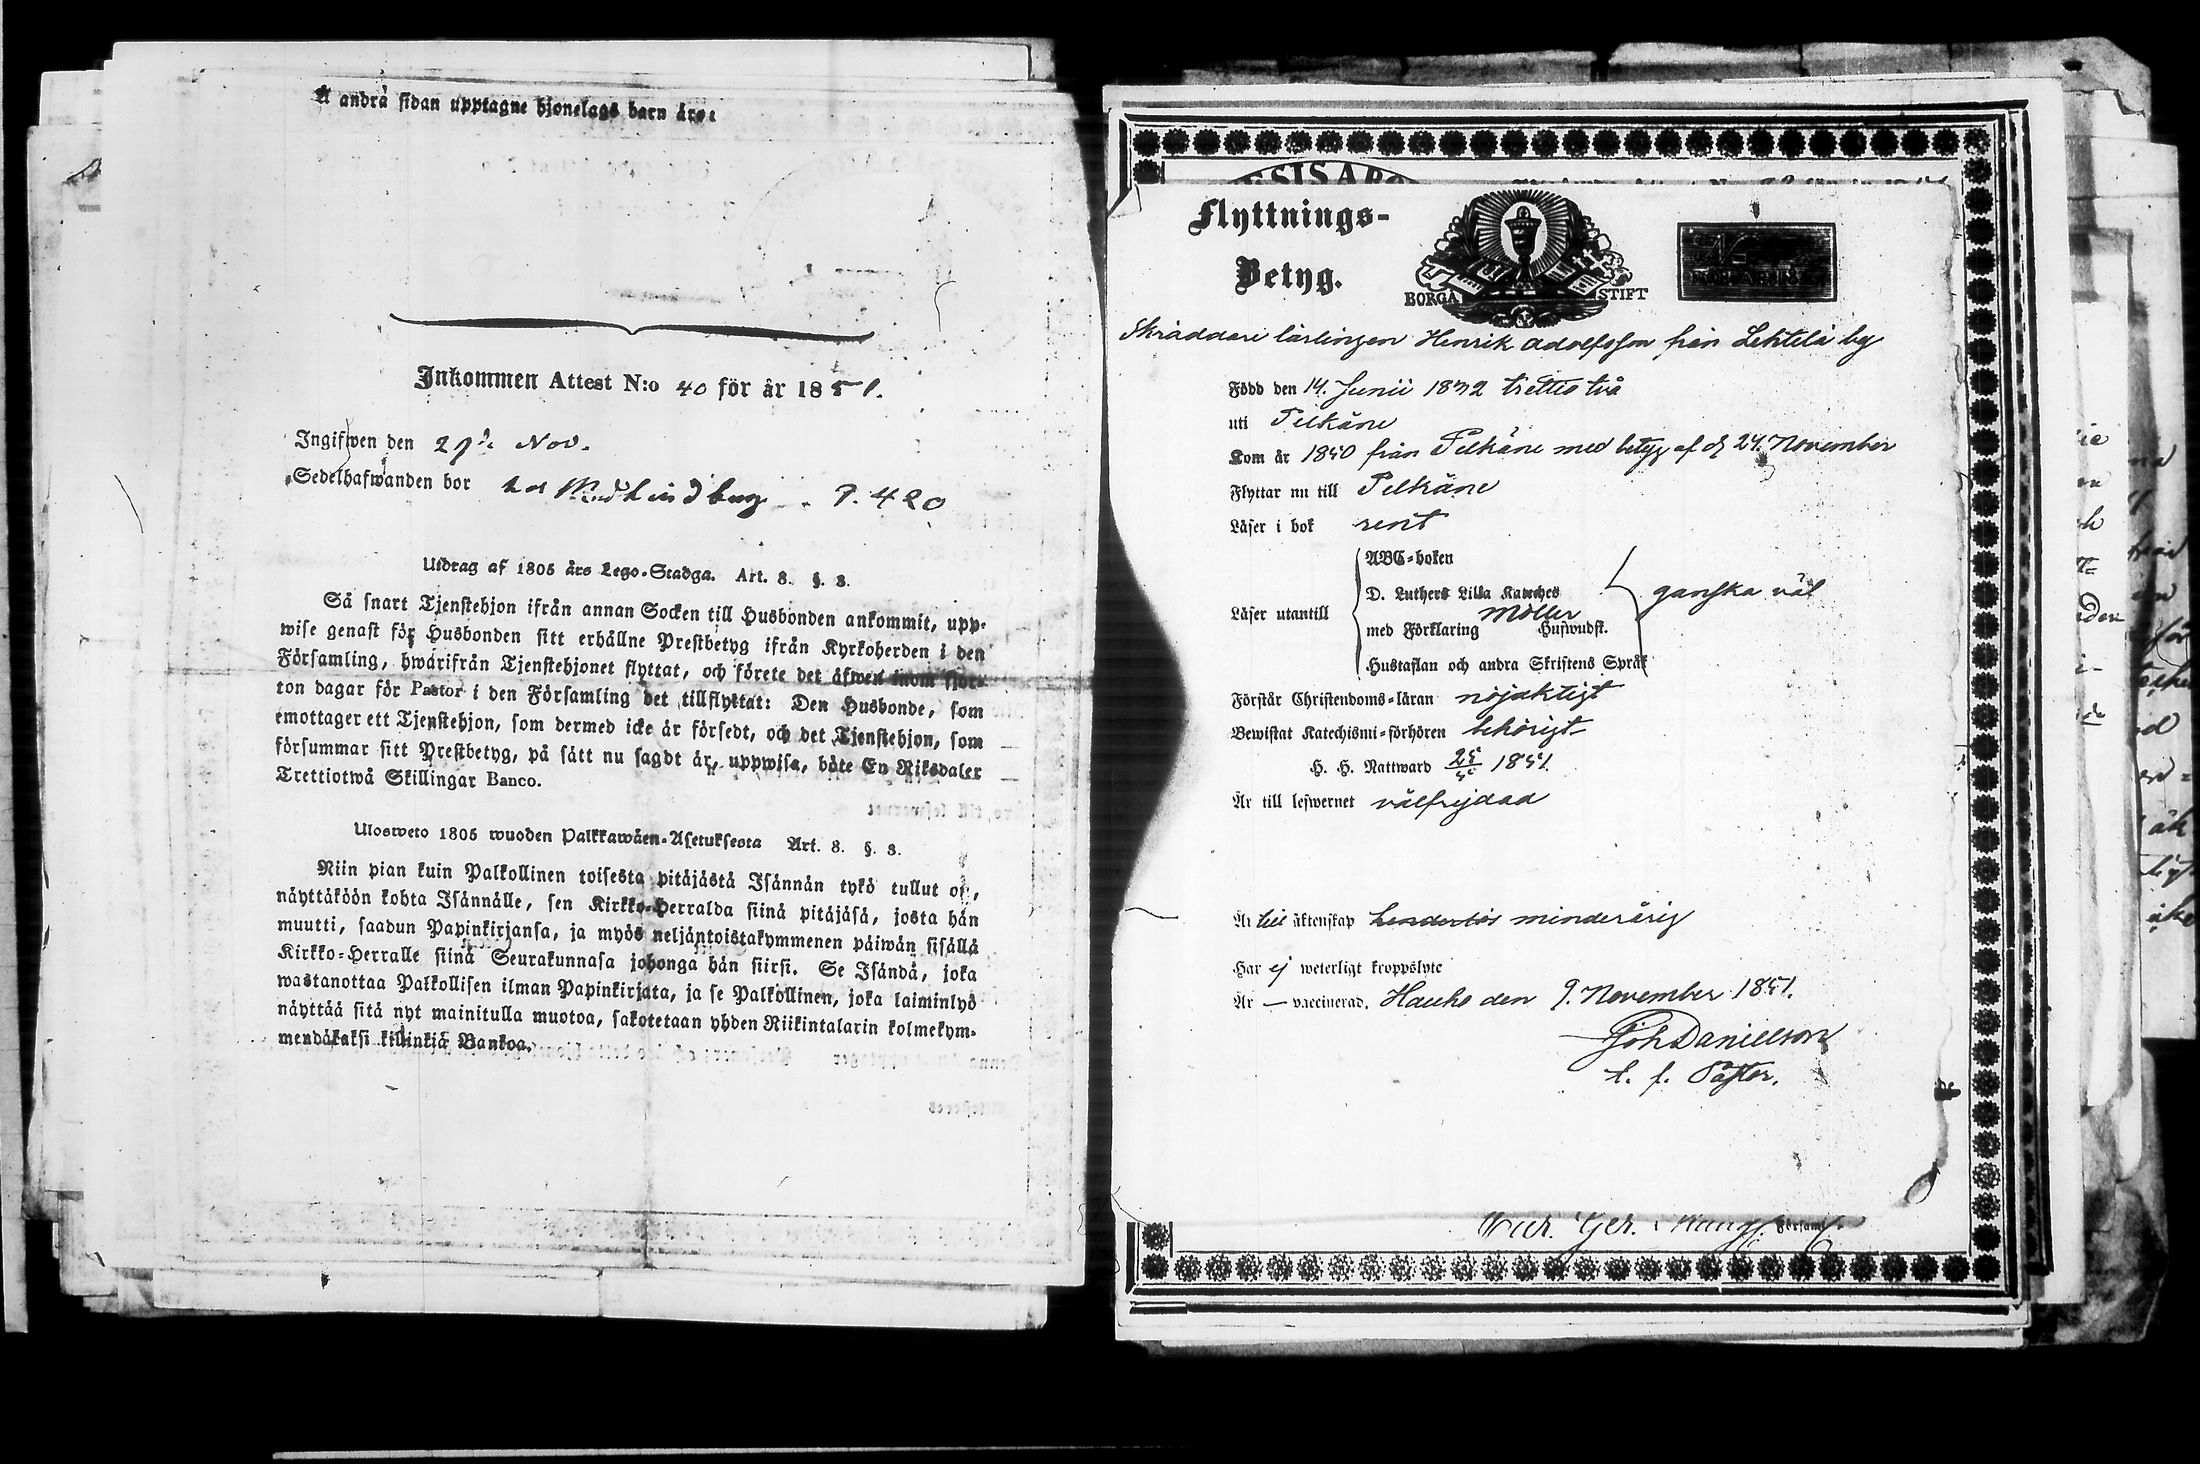 Å andra sidan upptagne hjonelags barn äro:
Inkommen Attest N:o 40 för år 1851.
Ingifwen den 29de Nov.
Sedelhafwanden bor hos P. 420
Utdrag af 1805 års Lego-Stadga. Art. 8. §. 8.
Så snart Tjenstehjon ifrån annan Socken till Husbonden ankommit, upp-
wise genast för Husbonden sitt erhållne Prestbetyg ifrån Kyrkoherden i den
Församling, hwarifrån Tjenstehjonet flyttat, och förete det äfwen inom fjor-
ton dagar för Pastor i den Församling det tillflyttat: Den Husbonde, som
emottager ett Tjenstehjon, som dermed icke är försedt, och det Tjenstehjon, som
försummar sitt Prestbetyg, på sätt nu sagdt är, uppwisa, böte En Riksdaler
Trettiotwå Skillingar Banco.
Ulosweto 1805 wuoden Palkkawäen-Asetuksesta Art. 8. §. 8.
Niin pian kuin Palkollinen toisesta pitäjästä Isännän tykö tullut on,
näyttäköön kohta Isännälle, sen Kirkko-Herralda siinä pitäjäsä, josta hän
muutti, saadun Papinkirjansa, ja myös neljäntoistakymmenen päiwän sisällä
Kirkko-Herralle siinä Seurakunnasa johonga hän siirsi. Se Isändä, joka
wastanottaa Palkollisen ilman Papinkirjata, ja se Palkollinen, joka laiminlyö
näyttää sitä nyt mainitulla muotoa, sakotetaan yhden Riikintalarin kolmekym-
mendäkaksi killinkiä Bankoa.
Flyttnings-
Betyg.
BORGÅ STIFT
Skräddare lärlingen Henrik Adolfsson från Lehtilä by
Född den 14. Junii 1832 trettio två
uti Pelkäne
Kom år 1850 från Pelkäne med betyg af d 24. November
Flyttar nu till Pelkäne
Läser i bok rent
ABC-boken
D. Luthers Lilla Kateches
Läser utantill
med Förklaring Möller Huswudst.
Hustaflan och andra Skriftens Språk
ganska väl
Förstår Christendoms-läran nöjaktigt
Bewistat Katechismi-förhören behörigt
H. H. Nattward 25/5 1851
Är till lefwernet välfrejdad
Är till äktenskap hinderlös minderårig
Har ej weterligt kroppslyte
Är — vaccinerad. Hauho den 9. November 1851.
Joh Danielson
t. f. Pastor.
Församl.